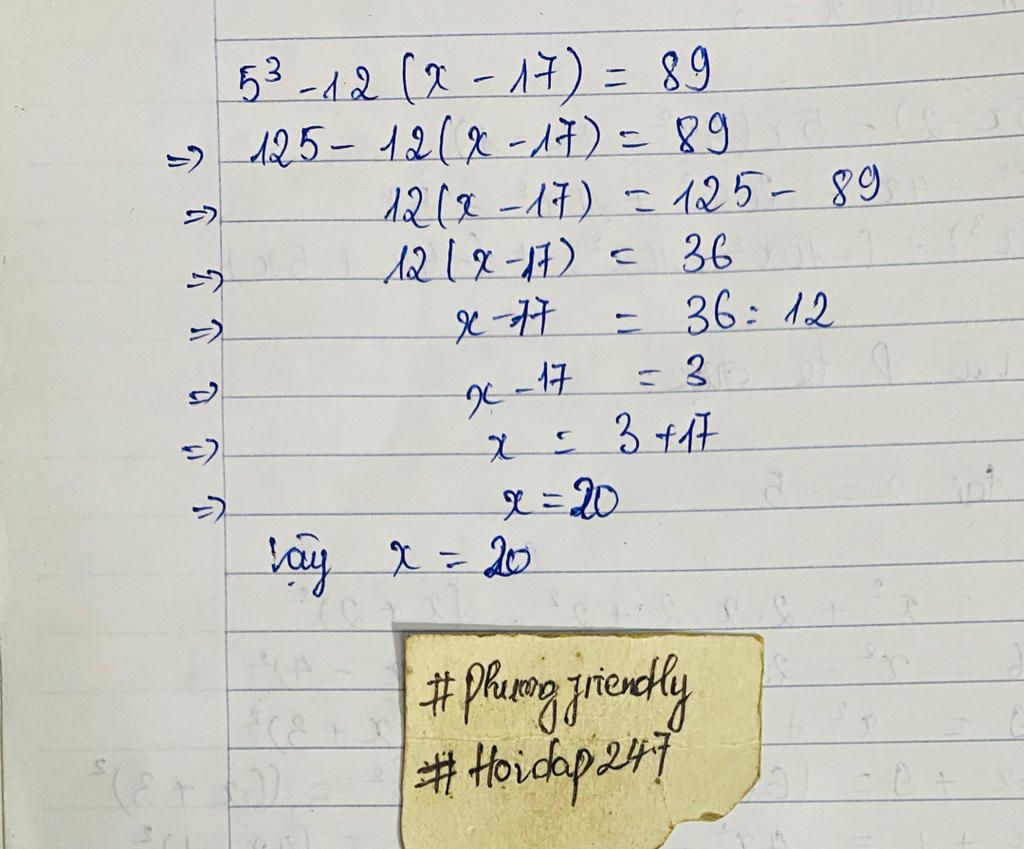 5³ - 12 (x - 17) = 89
=> 125 - 12(x - 17) = 89
=> 12(x - 17) = 125 - 89
=> 12(x - 17) = 36
=> x - 17 = 36 : 12
=> x - 17 = 3
=> x = 3 + 17
=> x = 20
Vậy x = 20
# Phuongfriendly
# Hoidap247